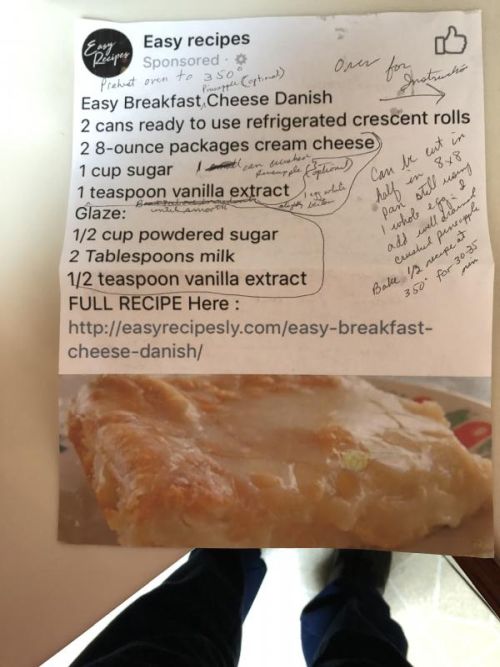 Easy Recipes
Easy recipes
Sponsored
Preheat oven to 350°
Pineapple (optional)
Over for
Instructions
Easy Breakfast Cheese Danish
2 cans ready to use refrigerated crescent rolls
2 8-ounce packages cream cheese
1 cup sugar
1 can crushed
pineapple (optional)
1 teaspoon vanilla extract
1 egg white
slightly beaten
until smooth
Glaze:
1/2 cup powdered sugar
2 Tablespoons milk
1/2 teaspoon vanilla extract
FULL RECIPE Here :
http://easyrecipesly.com/easy-breakfast-
cheese-danish/
Can be cut in
half in 8x8
pan still using
1 whole egg &
add well drained
crushed pineapple
Bake 1/2 recipe at
350° for 30-35
min